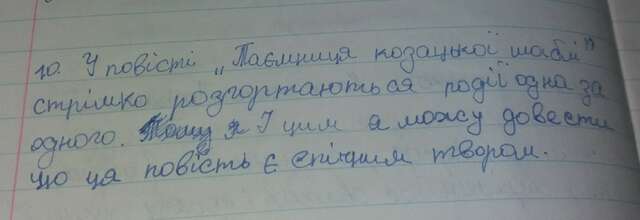 10. У повісті „Таємниця козацької шаблі"
стрімко розгортаються події одна за
одного. І цим я можу довести
що ця повість є епічним твором.